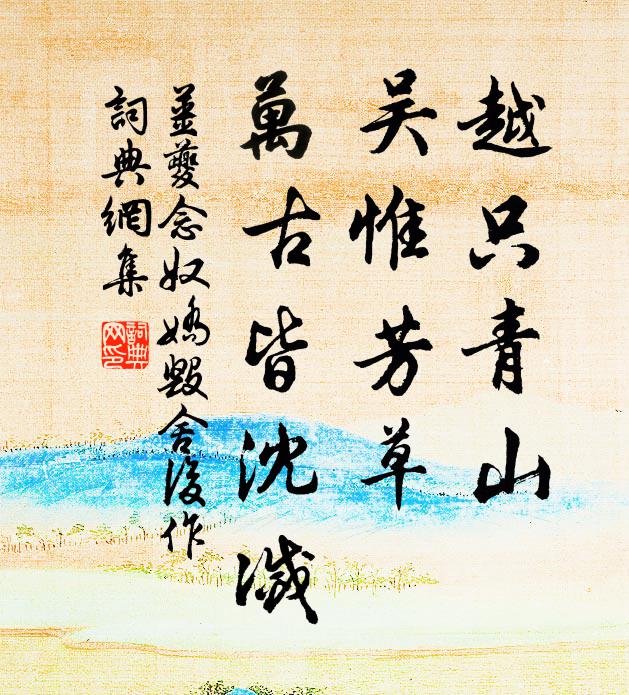 越只青山
吴惟芳草
萬古皆沈滅
姜夔念奴嬌毀舍後作
詞典網集
詞典
网印